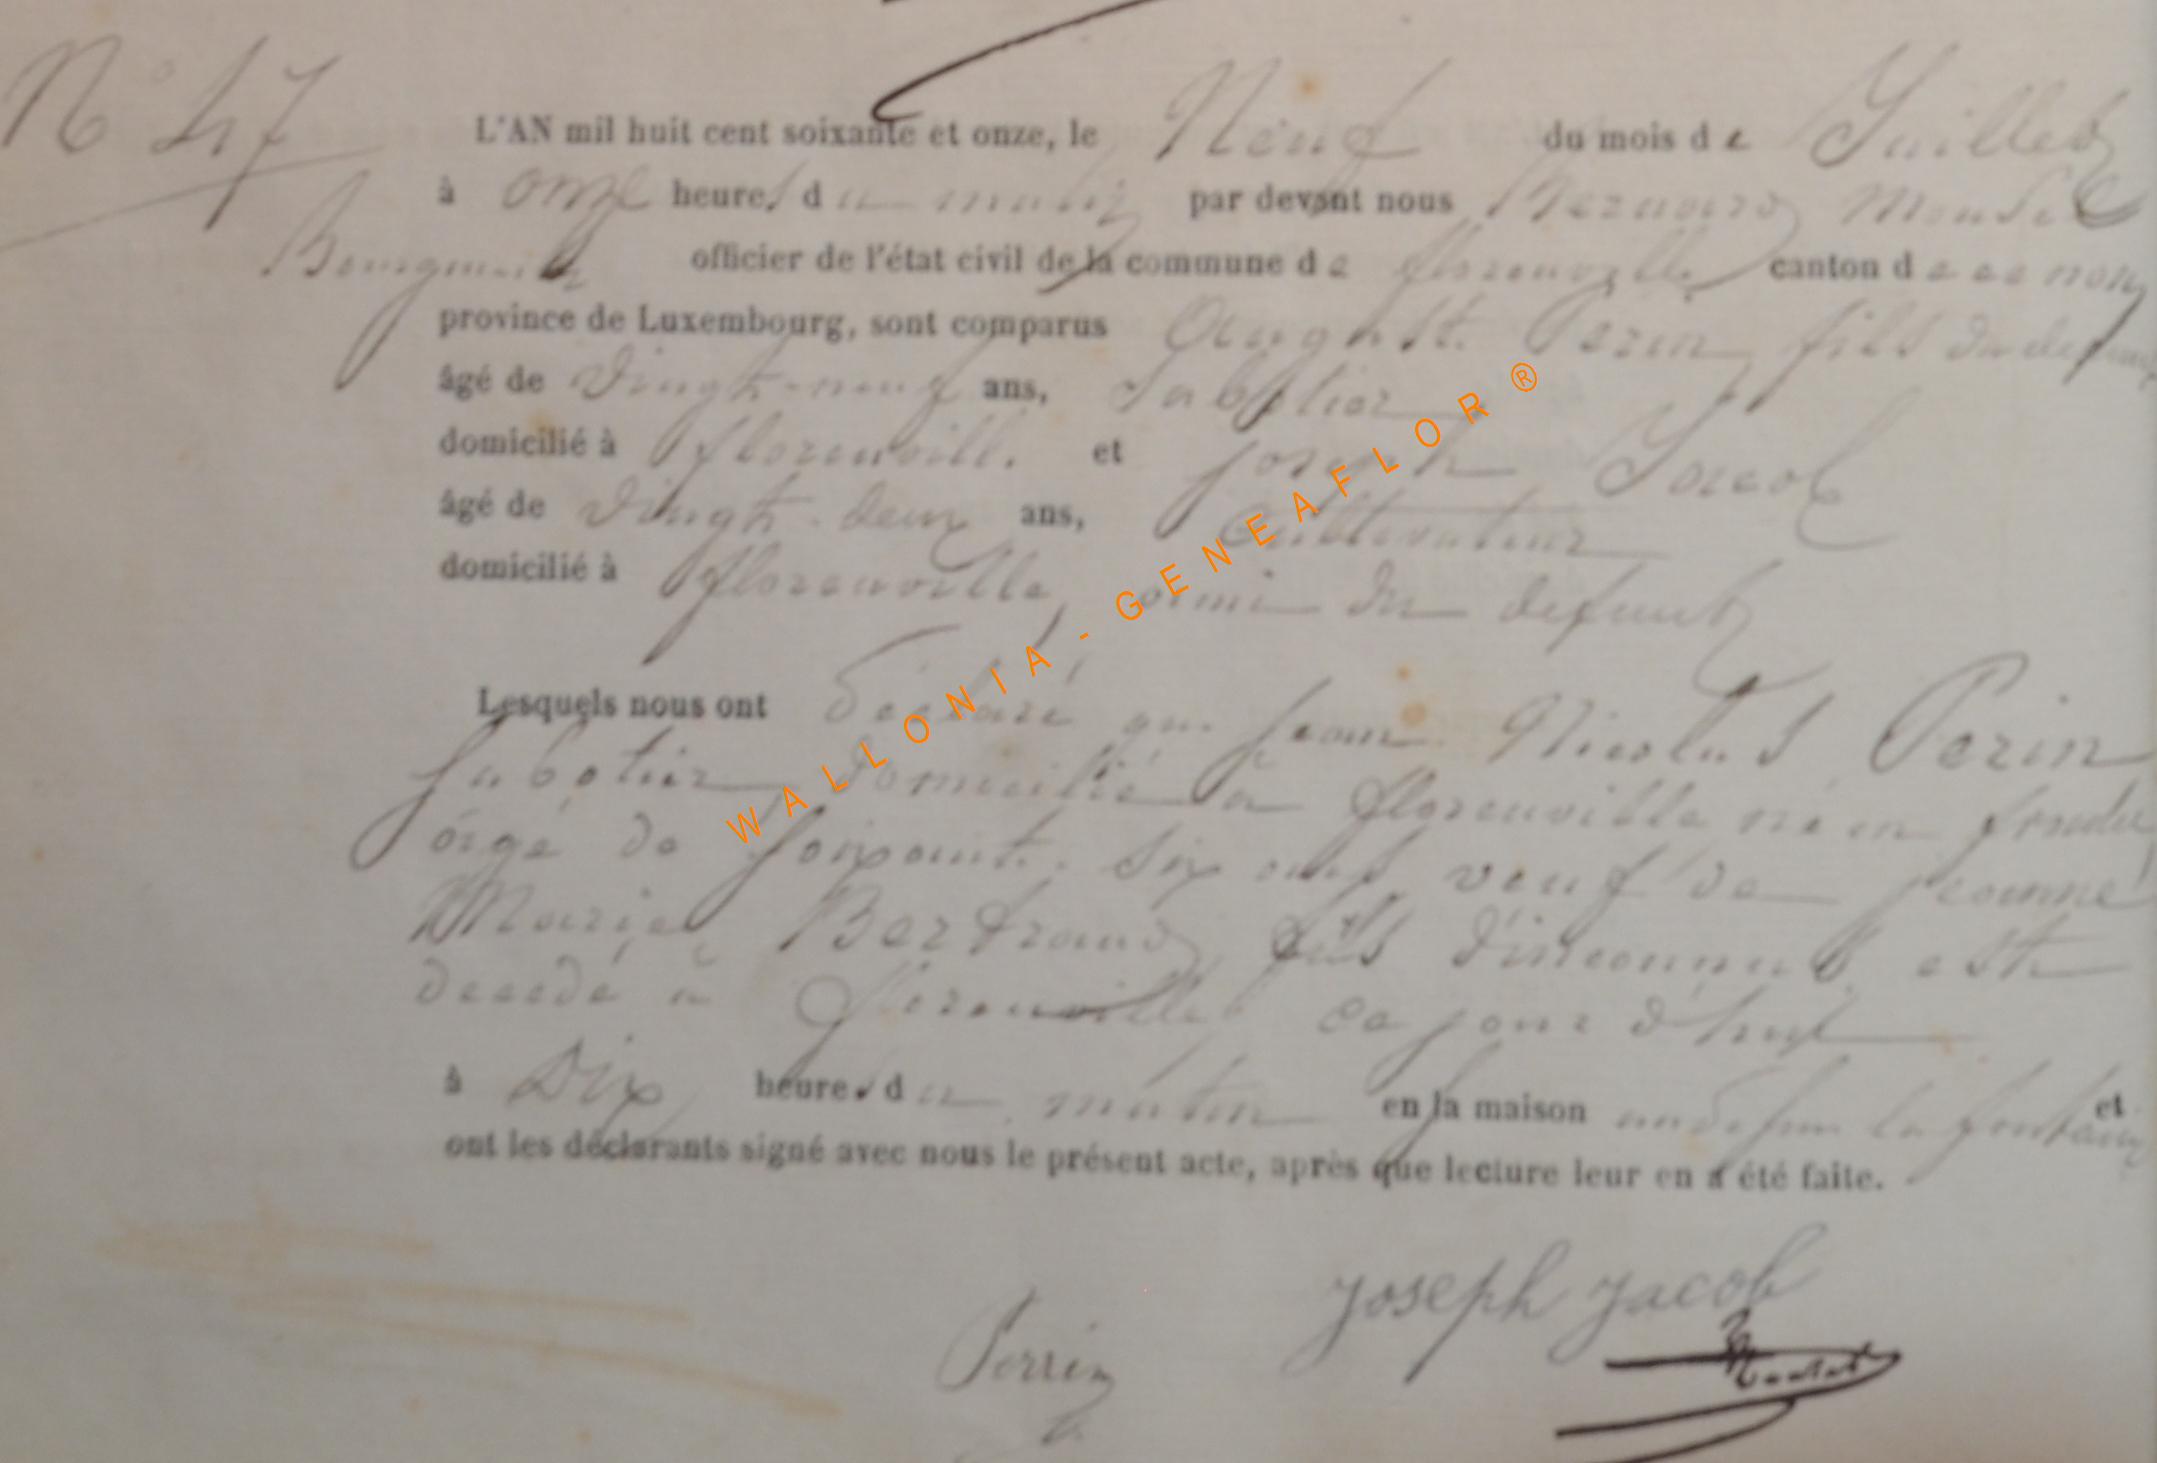 N° 47
L'AN mil huit cent soixante et onze, le Neuf du mois de Juillet
à onze heures du matin par devant nous Bernard
Bourgmestre officier de l'état civil de la commune de florenville canton de ce nom
province de Luxembourg, sont comparus August. Perin fils du defunt
âgé de vingt-neuf ans, Sabotier
domicilié à florenvill. et joseph Jacob
âgé de vingt-deux ans, Cultivateur
domicilié à florenville, ami du defunt
Lesquels nous ont déclaré que jean Nicolas Perin
Sabotier domicilié à florenville né en
âgé de soixante. six ans veuf de jeanne
Marie Bertrand fils d'inconnus est
decedé à florenville ce jour d'hui
à Dix heures du matin en la maison et
ont les déclarants signé avec nous le présent acte, après que lecture leur en a été faite.
joseph jacob
Perrin
WALLONIA - GENEAFLOR ®